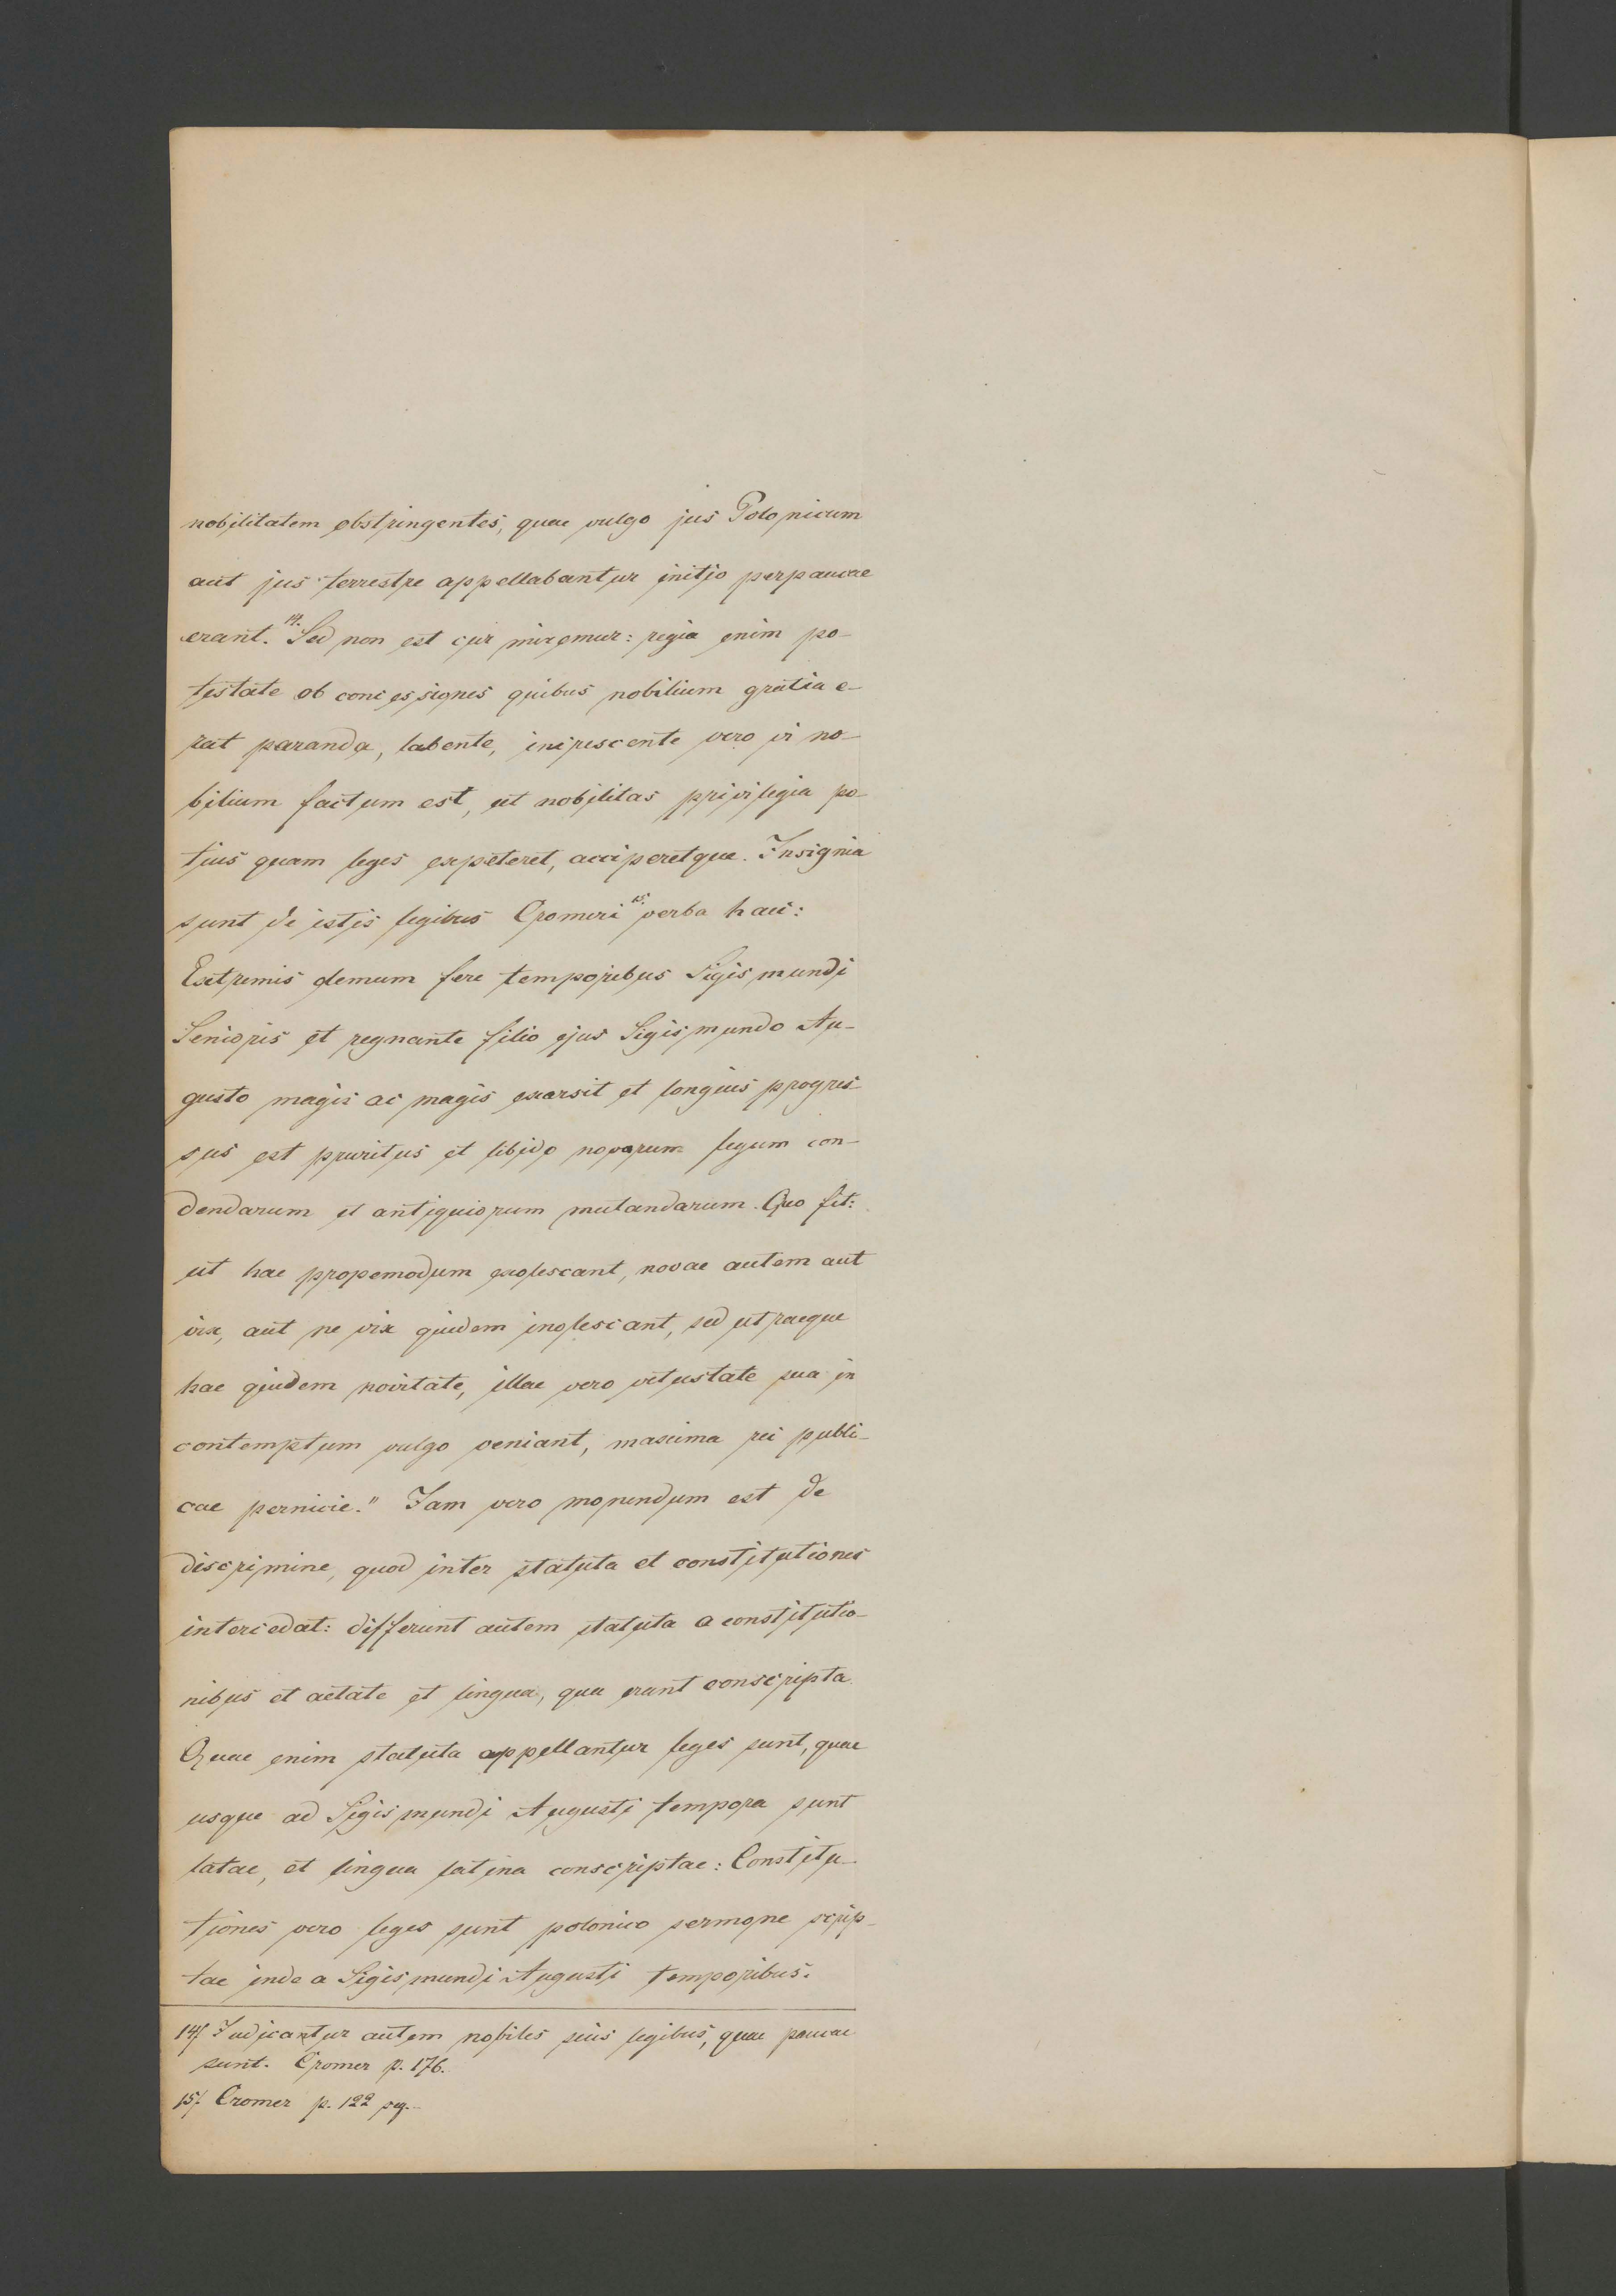 nobilitatem obstringentes, quae vulgo jus Polonicum
aut jus terrestre appellabantur initio perpaucae
erant. 14. Sed non est cur miremur: regia enim po-
testate ob concessiones quibus nobilium gratia e-
rat paranda, labente, increscente vero vi no-
bilium factum est, ut nobilitas privilegia po-
tius quam leges expeteret, acciperetque. Insignia
sunt de istis legibus Cromeri 15. verba haec:
Extremis demum fere temporibus Sigismundi
Senioris et regnante filio ejus Sigismundo Au-
gusto magis ac magis exarsit et longius progres-
sus est pruritus et libido novarum legum con-
dendarum et antiquiorum mutandarum. Quo fit:
ut hae propemodum exolescant, novae autem aut
vix, aut ne vix quidem inolescant, sed utraeque
hae quidem novitate, illae vero vetustate sua in
contemptum vulgo veniant, maxima rei publi-
cae pernicie." Iam vero monendum est de
discrimine, quod inter statuta et constitutiones
intercedat: differunt autem statuta a constitutio-
nibus et aetate et lingua, qua erant conscripta.
Quae enim statuta appellantur leges sunt, quae
usque ad Sigismundi Augusti tempora sunt
latae, et lingua latina conscriptae: Constitu-
tiones vero leges sunt polonico sermone scrip-
tae inde a Sigismundi Augusti temporibus.
14/ Judicantur autem nobiles suis legibus, quae paucae
sunt. Cromer p. 176.
15/. Cromer p. 122 seq.